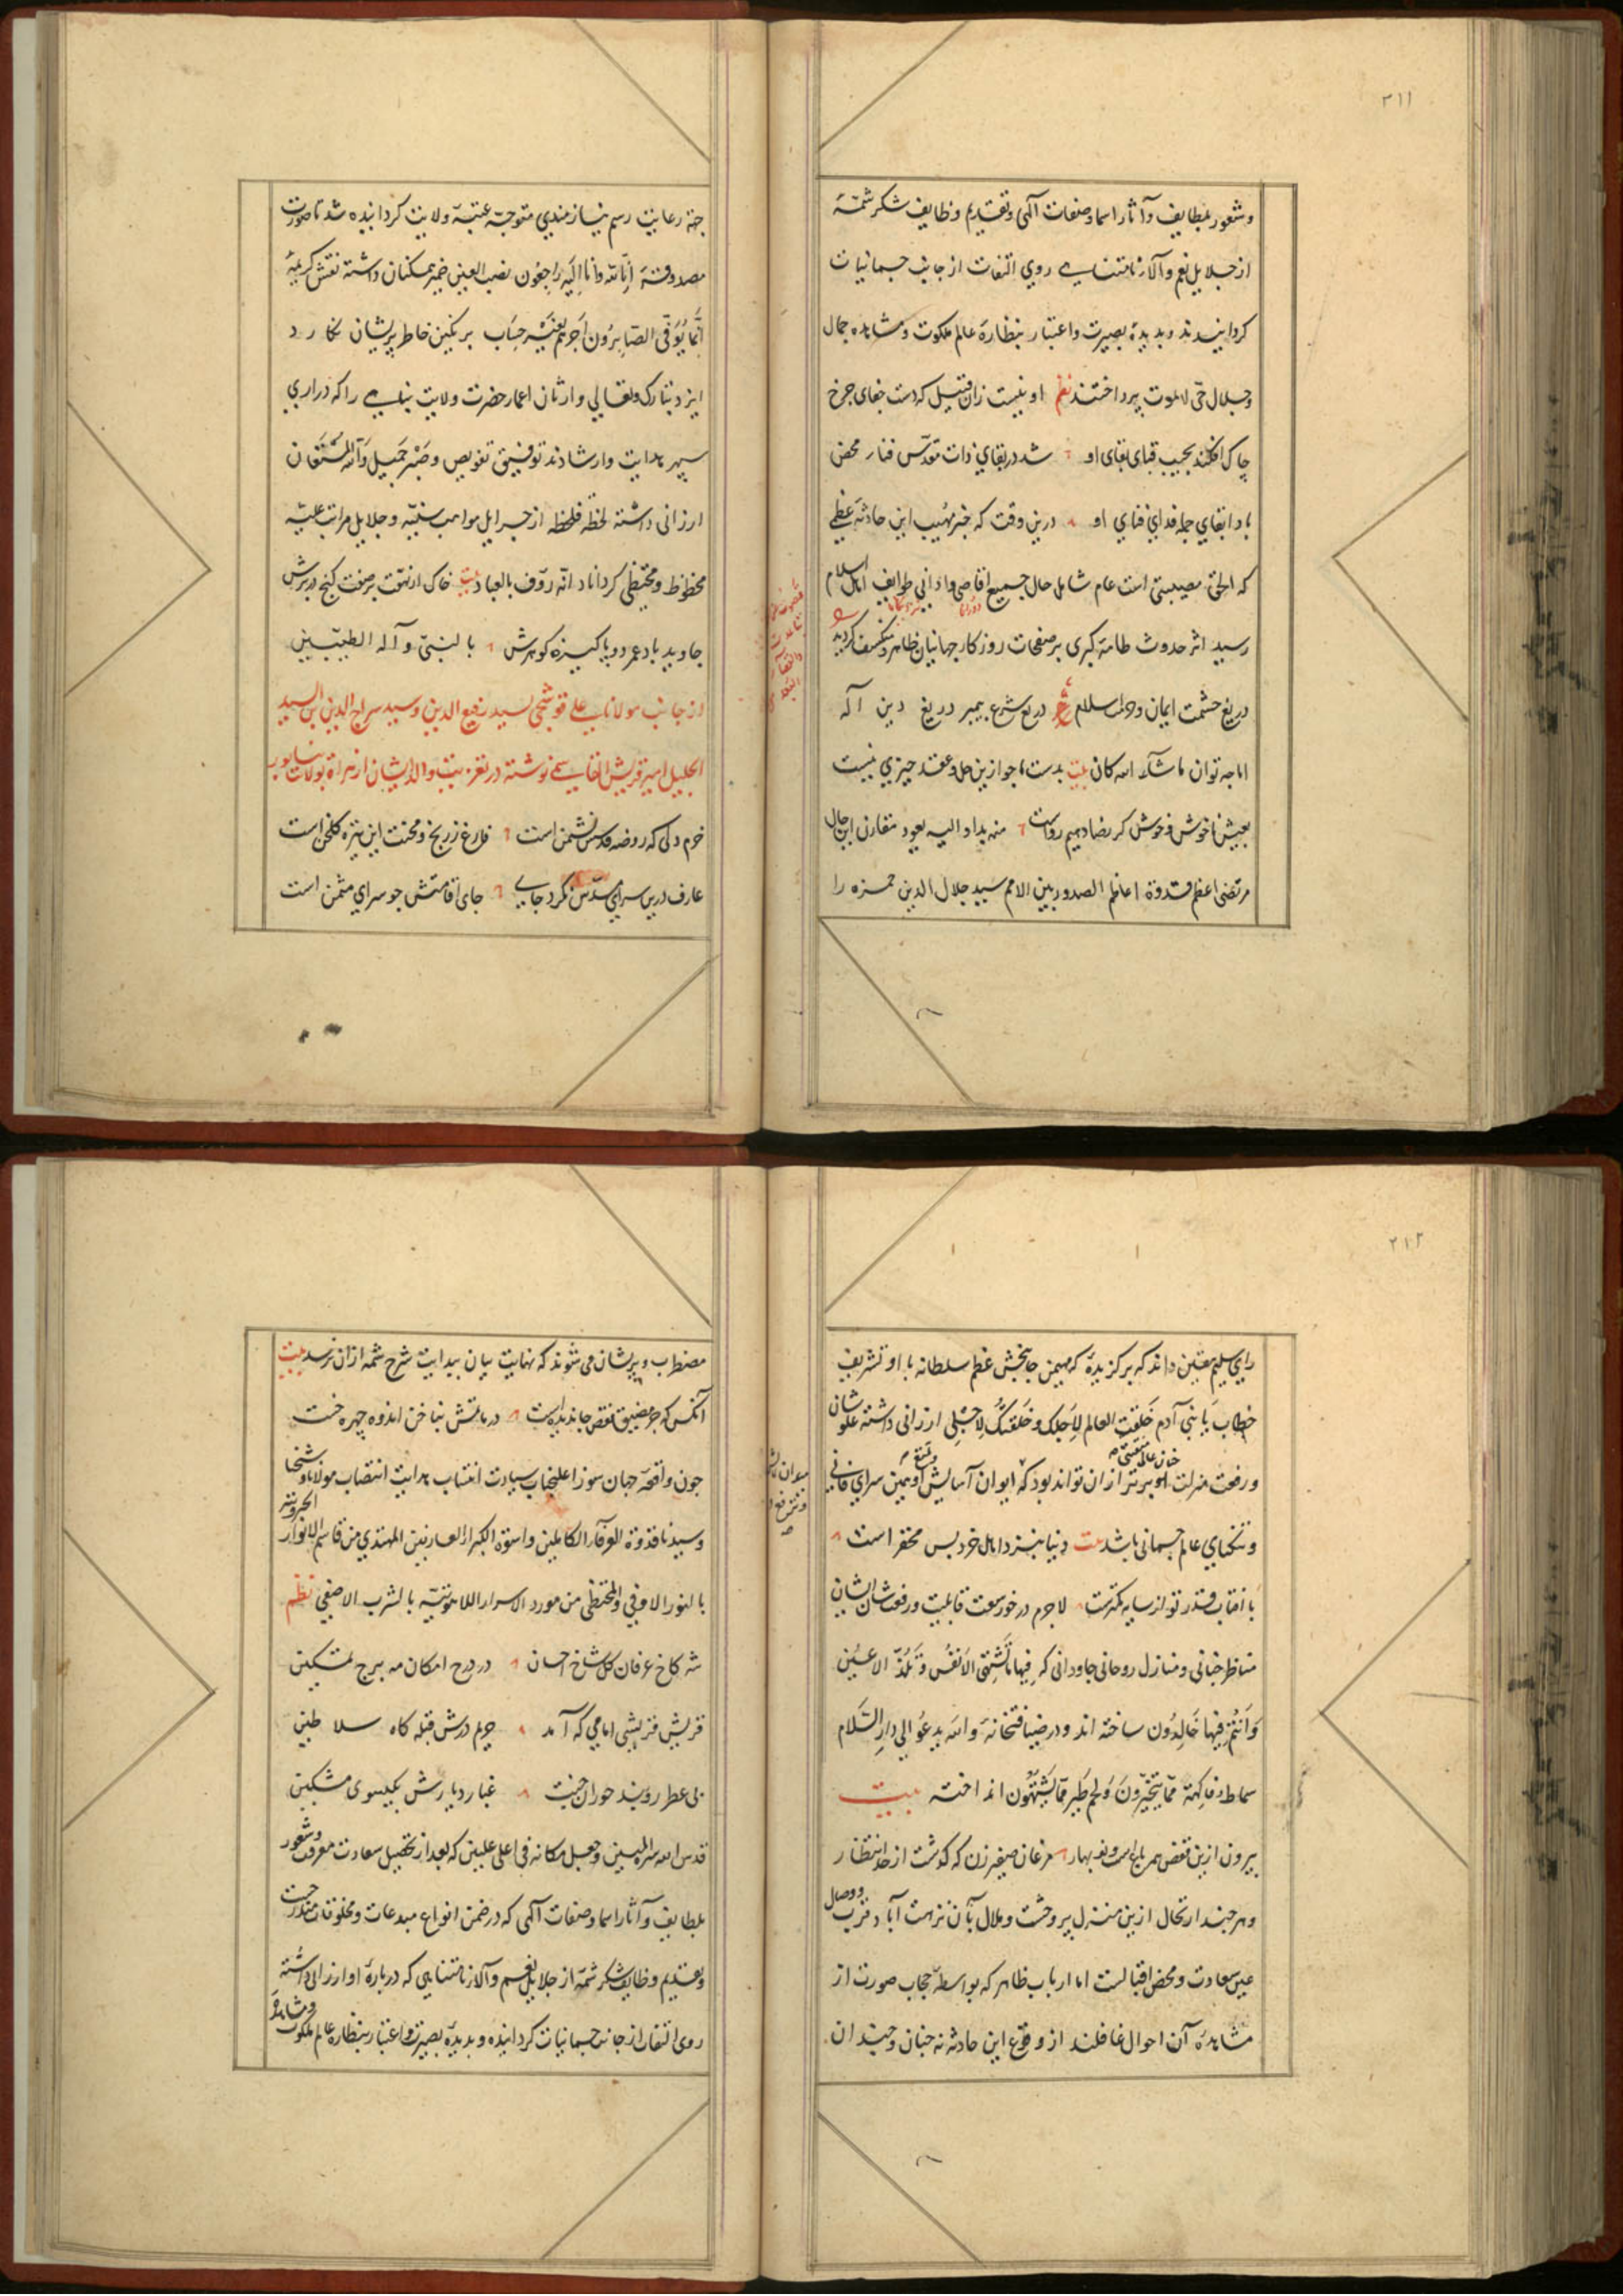 ۳۱۱
وشعور بلطایف وآثار اسما وصفات آلهی وتقدیم وظایف شکر شمّهٔ
از جلایل نعم وآلاء نامتناهی روی التفات از جانب جسمانیات
کردانیدند وبدیدهٔ بصیرت واعتبار بنظارهٔ عالم ملکوت ومشاهده جمال
وجلال حیّ لایموت پرداختند نظم او نیست زان قبیل که دست جفای چرخ
چاک افکند بجیب قبای بقای او شد در بقای ذات مقدّس فناء محض
بادا بقای جمله فدای فنای او درین وقت که خبر مهیب این حادثهٔ عظمی
که الحق مصیبتی است عام شامل حال جمیع اقاصی وادانی طوایف اهل اسلام
رسید اثر حدوث طامهٔ کبری بر صفحات روزکار جهانیان ظاهر ومنکسف کردید
دریغ حشمت ایمان ودولت اسلام دریغ شرع پیمبر دریغ دین آله
اما چه توان ماشاء الله کان بیت بدست ما جو ازین حل وعقد چیزی نیست
بعیش ناخوش وخوش کر رضا دهیم رواست منه بدا والیه یعود مقارن این حال
مرتضی اعظم قدوة اعاظم الصدور بین الامم سید جلال الدین حمزه را
جهة رعایت رسم نیازمندی متوجهٔ عتبهٔ ولایت کردانیده شد تا صورت
مصدوقهٔ اِنّا لله وانا اِلَیه راجعُون نصب العین ضمیر همکنان داشته نقش کریمهٔ
اِنَّما یُوَفَّی الصّابِرُون اَجرهُم بِغَیر حِسَاب بر نکین خاطر پریشان نکارد
ایزد تبارک وتعالی وارثان اعمار حضرت ولایت پناهی را که دراری
سپهر هدایت وارشادند توفیق تفویض وصَبْر جَمیل وَالله المُستَعَان
ارزانی داشته لحظه فلحظه از جزایل مواهب سنیّه وجلایل مراتب علیّه
محظوظ ومحتظی کرداناد انّه رؤف بالعباد بیت خاک ار نهفت برصفت کنج در برش
جاوید باد عمر دو پاکیزه کوهرش بالنبیّ وآله الطیّبین
از جانب مولانا علی قوشجی لسید رفیع الدین وسید سراج الدین ابن السید
الجلیل امیر قریش نوشته در تعزیت والد ایشان از هراة بولایت
خرم دلی که روضه قدسش نشیمن است فارغ ز رنج ومحنت این تیره کلخن است
عارف درین سرای مسدّس نکرد جای جای اقامتش چو سرای مثمن است
۳۱۲
رای سلیم متین داند که برکزیدهٔ که مهیمن جانبخش عظم سلطانه با او تشریف
خطاب یا بنی آدم خَلقت العالم لِاَجلک وخلقتک لِاَجلی ارزانی داشته علوّ شان
ورفعت منزلت او برتر از ان تواند بود که ایوان آسایش او همین سرای فانی
وتنکنای عالم جسمانی باشد بیت دنیا بنزد اهل خرد بس محقر است
با آفتاب قدر تو از سایه کمترست لاجرم در خور سعت قابلیت ورفعت شان ایشان
مناظر جنانی ومنازل روحانی جاودانی که فِیها مَا تَشتهی الانفُس وَتَلَذّ الاعیُن
وَاَنتُم فِیهَا خَالِدُون ساخته اند ودر ضیافتخانهٔ والله یدعُو الی دارِ السَّلام
سماط وفاکِهَة مِمّا یَتخیّرُونَ وَلحم طَیر مِمّا یَشتَهُون انداخته بیت
بیرون ازین قفص همه باغ است ونوبهار مرغان صفیرزن که کذشت از حد انتظار
وهر چند ارتحال ازین منزل پر وحشت وملال بآن نزهت آباد قرب ووصال
عین سعادت ومحض اقبالست اما ارباب ظاهر که بواسطهٔ حجاب صورت از
مشاهدهٔ آن احوال غافلند از وقوع این حادثه نه چنان وچندان
مضطرب وپریشان می شوند که نهایت بیان بدایت شرح شمه از ان نرسد بیت
آنکس که جز مضیق قفص جا ندیده است در ماتمش بناخن اندوه چهره خست
چون واقعهٔ جهان سوز اعلیجناب سیادت انتساب هدایت انتصاب مولانا وشیخنا
وسیدنا قدوة العرفاء الکاملین واسوة الکبراء العارفین المهتدی من قاسم الانوار الجبروتیة
بالنور الاوفی والمحتظی من مورد الاسرار اللاهوتیّه بالشرب الاصفی نظم
شه کاخ عرفان کل شاخ احسان در درج امکان مه برج تمکین
قریش قریشی امامی که آمد حریم درش قبله کاه سلاطین
پی عطر روبند حوران جنت غبار دیارش بکیسوی مشکین
قدس الله سره المبین وجعل مکانه فی اعلی علیین که بعد از تحصیل سعادت معرفت وشعور
بلطایف وآثار اسما وصفات آلهی که در ضمن انواع مبدعات ومخلوقات مندرجست
وتقدیم وظایف شکر شمّه از جلایل نعم وآلاء نامتناهی که دربارهٔ او ارزانی داشته
روی التفات از جانب جسمانیات کردانیده وبدیدهٔ بصیرت واعتبار بنظاره عالم ملکوت ومشاهدهٔ